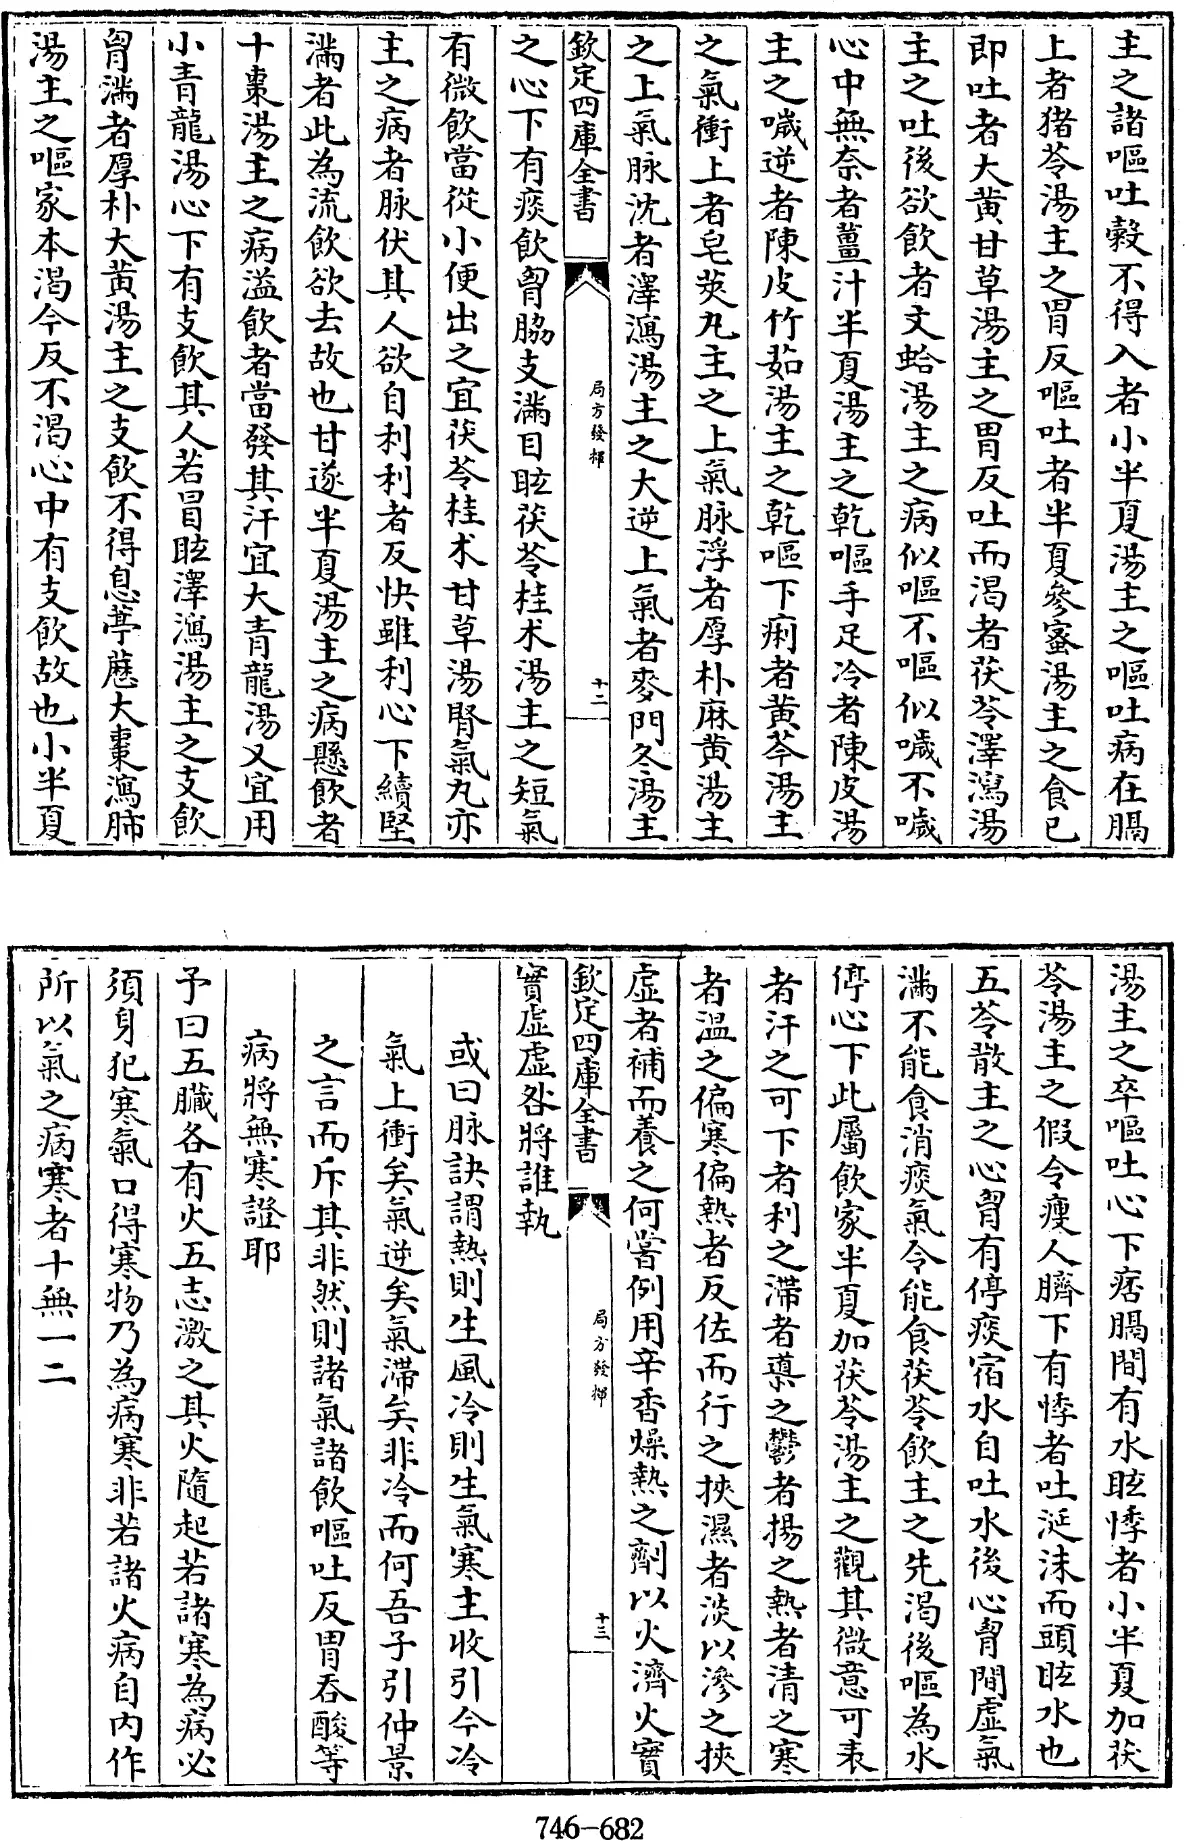 主之諸嘔吐穀不得入者小半夏湯主之嘔吐病在膈
上者猪苓湯主之胃反嘔吐者半夏參蜜湯主之食已
即吐者大黄甘草湯主之胃反吐而渴者茯苓澤瀉湯
主之吐後欲飲者文蛤湯主之病似嘔不嘔似噦不噦
心中無奈者薑汁半夏湯主之乾嘔手足冷者陳皮湯
主之噦逆者陳皮竹茹湯主之乾嘔下痢者黄芩湯主
之氣衝上者皂莢丸主之上氣脉浮者厚朴麻黄湯主
之上氣脉沈者澤瀉湯主之大逆上氣者麥門冬湯主
欽定四庫全書
局方發揮
十二
之心下有痰飲胷脇支滿目眩茯苓桂术湯主之短氣
有微飲當從小便出之宜茯苓桂术甘草湯腎氣丸亦
主之病者脉伏其人欲自利利者反快雖利心下續堅
滿者此為流飲欲去故也甘遂半夏湯主之病懸飲者
十棗湯主之病溢飲者當發其汗宜大青龍湯又宜用
小青龍湯心下有支飲其人若冒眩澤瀉湯主之支飲
胷滿者厚朴大黄湯主之支飲不得息葶藶大棗瀉肺
湯主之嘔家本渴今反不渴心中有支飲故也小半夏
湯主之卒嘔吐心下痞膈間有水眩悸者小半夏加茯
苓湯主之假令瘦人臍下有悸者吐涎沫而頭眩水也
五苓散主之心胷有停痰宿水自吐水後心胷間虛氣
滿不能食消痰氣令能食茯苓飲主之先渴後嘔為水
停心下此屬飲家半夏加茯苓湯主之觀其微意可表
者汗之可下者利之滯者導之鬱者揚之熱者清之寒
者温之偏寒偏熱者反佐而行之挾濕者淡以滲之挾
虛者補而養之何嘗例用辛香燥熱之劑以火濟火實
欽定四庫全書
局方發揮
十三
實虛虛咎將誰執
或曰脉訣謂熱則生風冷則生氣寒主收引今冷
氣上衝矣氣逆矣氣滯矣非冷而何吾子引仲景
之言而斥其非然則諸氣諸飲嘔吐反胃吞酸等
病將無寒證耶
予曰五臟各有火五志激之其火隨起若諸寒為病必
須身犯寒氣口得寒物乃為病寒非若諸火病自内作
所以氣之病寒者十無一二
746-682